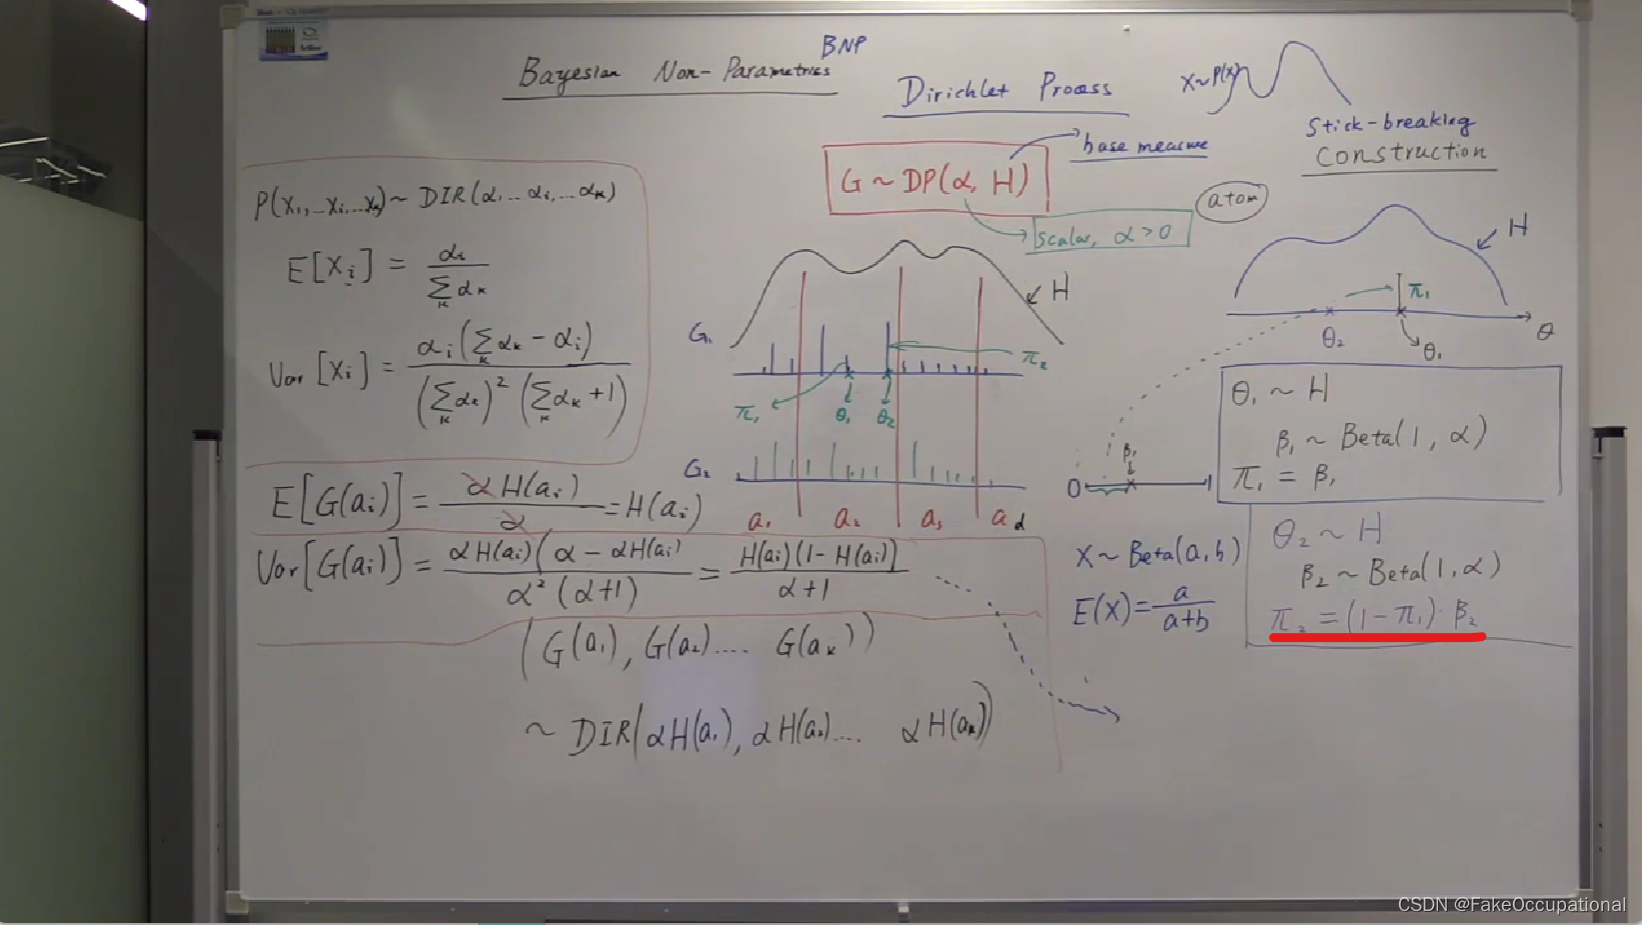 Bayesian Non-Parametrics
BNP
Dirichlet Process
X~P(x)
Stick-breaking
Construction
G ~ DP(α, H)
base measure
scalar, α>0
atom
P(X₁,...Xᵢ,...Xₖ) ~ DIR(α₁...αᵢ,...αₖ)
E[Xᵢ] = αᵢ / ∑ₖ αₖ
Var[Xᵢ] = αᵢ(∑ₖ αₖ - αᵢ) / (∑ₖ αₖ)² (∑ₖ αₖ + 1)
E[G(aᵢ)] = αH(aᵢ) / α = H(aᵢ)
Var[G(aᵢ)] = αH(aᵢ)(α - αH(aᵢ) / α²(α+1) = H(aᵢ)(1 - H(aᵢ)) / α+1
(G(a₁), G(a₂).... G(aₖ))
~ DIR(αH(a₁), αH(a₂).... αH(aₖ))
H
G₁
π₂
π₁
θ₁
θ₂
G₂
a₁
a₂
a₃
a d
H
π₁
θ₂
θ₁
θ
β₁
0
1
X ~ Beta(a,b)
E(X) = a / a+b
θ₁ ~ H
β₁ ~ Beta(1, α)
π₁ = β₁
θ₂ ~ H
β₂ ~ Beta(1,α)
π₂ = (1-π₁)·β₂
CSDN @FakeOccupational